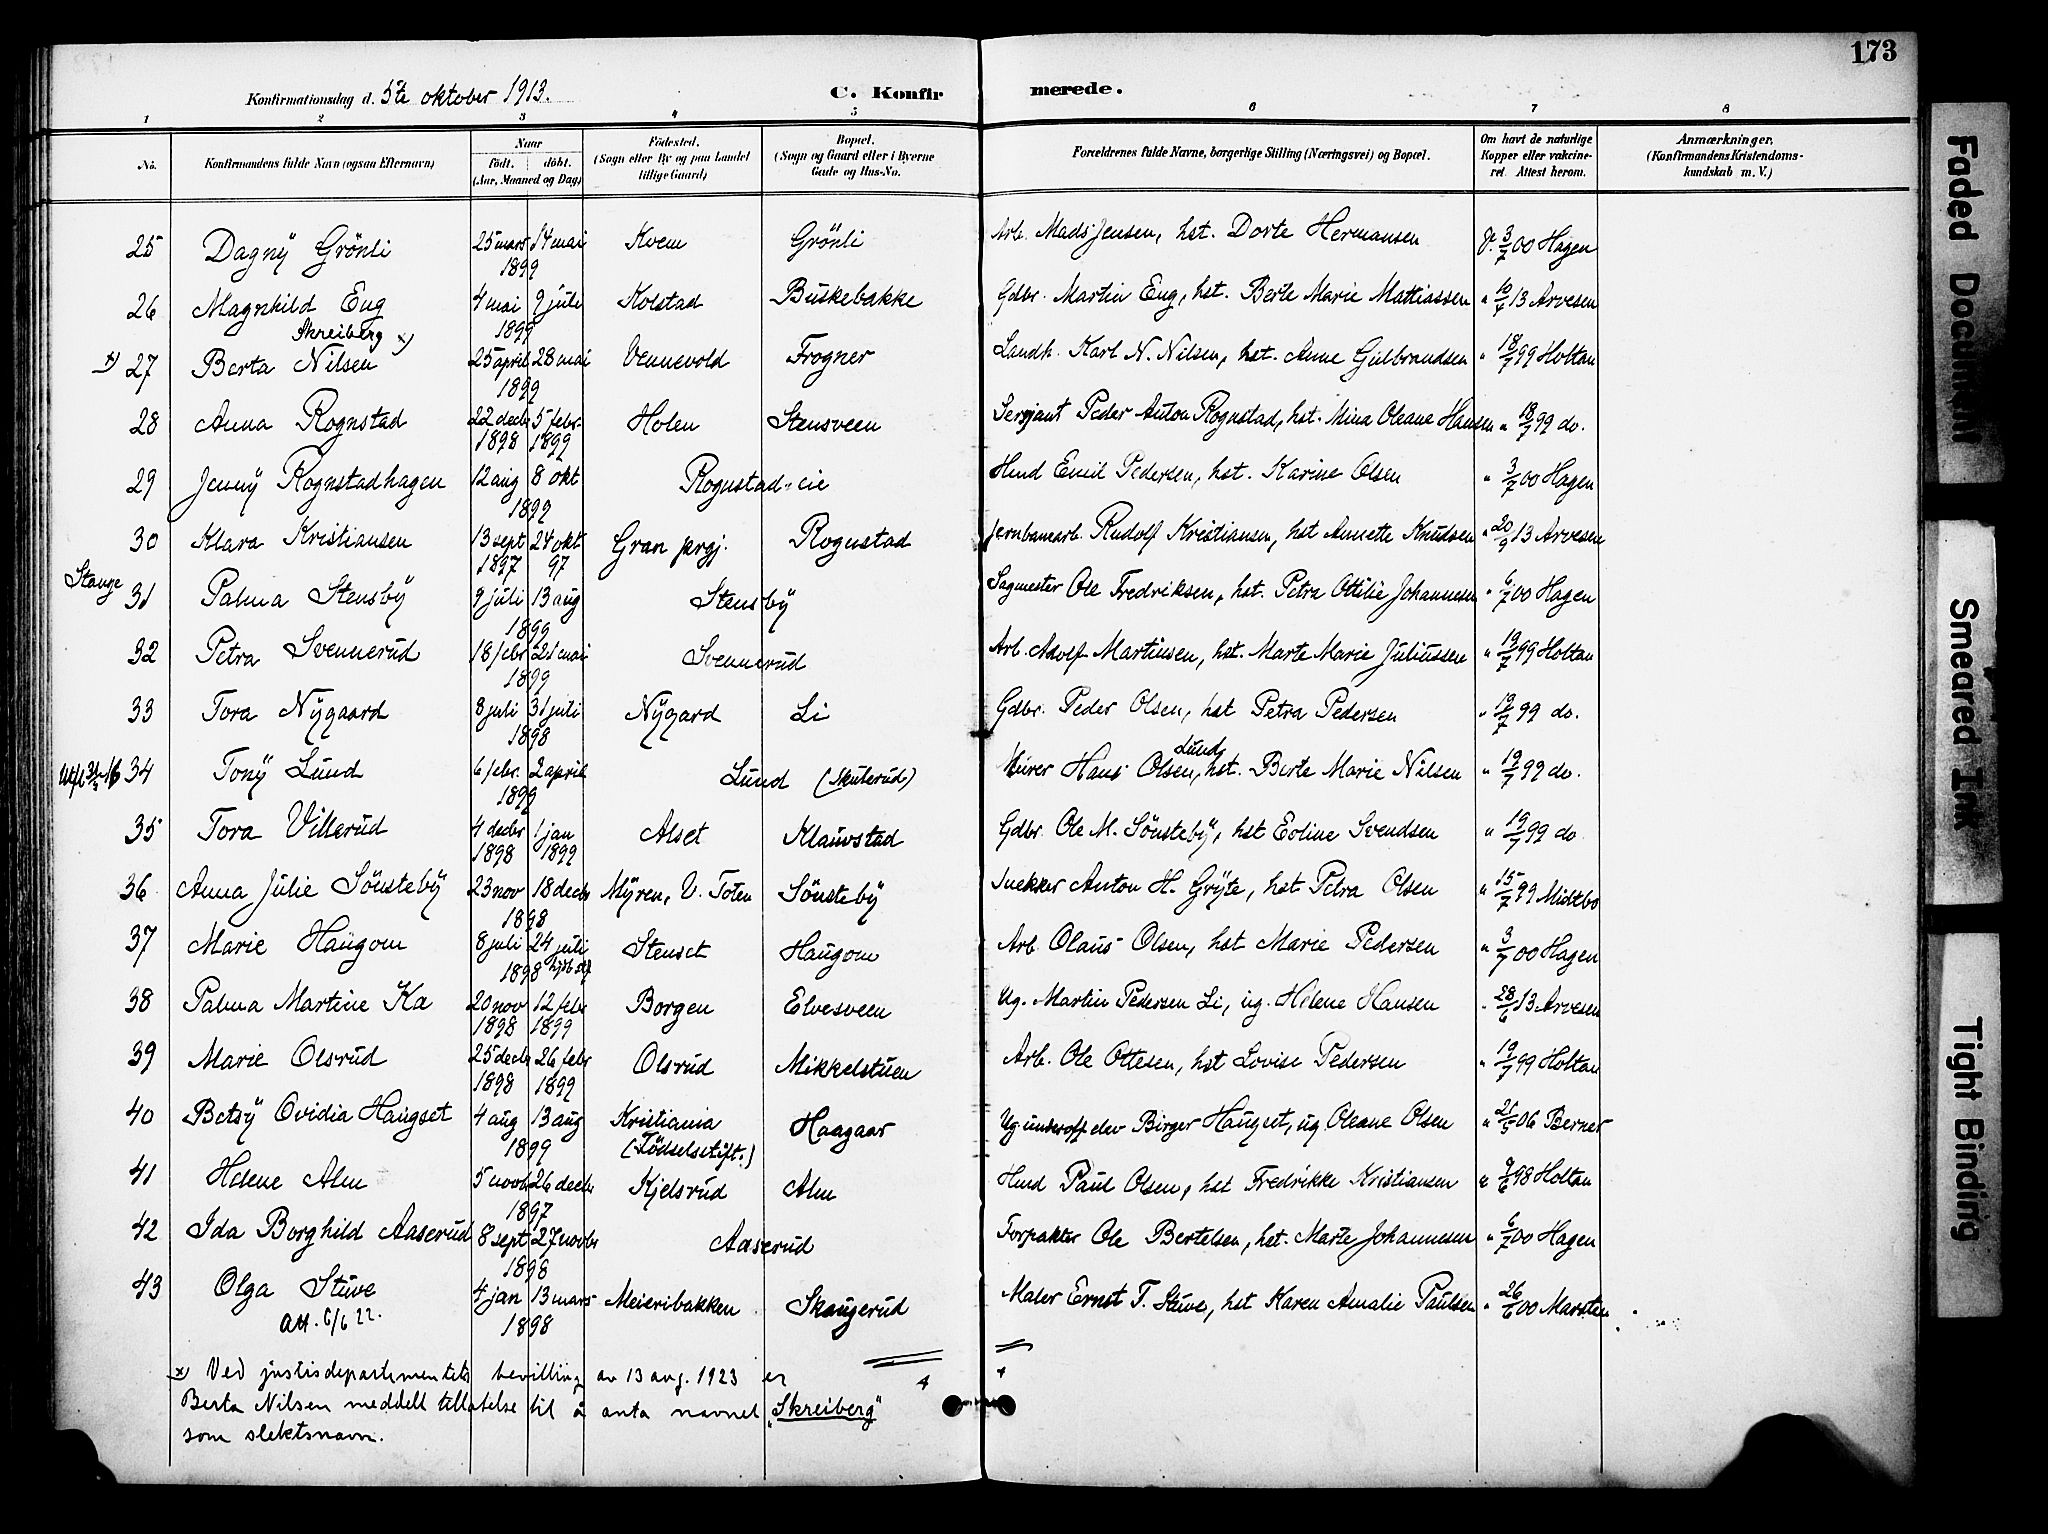 173
Konfirmationsdag d. 5te oktober 1913.
C. Konfirmerede.
1 2 3 4 5 6 7 8
No. Konfirmandens fulde Navn (ogsaa Efternavn) Naar födt. döbt. (Aar, Maaned og Dag) Födested. (Sogn eller By og paa Landet tillige Gaard) Bopæl. (Sogn og Gaard eller i Byerne Gade og Hus-No. Forældrenes fulde Navne, borgerlige Stilling (Næringsvei) og Bopæl. Om havt de naturlige Kopper eller vakcineret. Attest herom. Anmærkninger. (Konfirmandens Kristendomskundskab m. V.)
25 Dagny Grönli 25 mars 14 mai 1899 Kvem Grönli Arb. Mads Jensen, hst. Dorte Hermansen J. 3/7 00 Hagen
26 Magnhild Eng 4 mai 9 juli 1899 Kolstad Buskebakke Gdbr. Martin Eng, hst. Berte Marie Mattiassen " 10/7 13 Arvesen
Skreiberg x)
x) 27 Berta Nilsen 25 april 28 mai 1899 Vennevold Frogner Landh. Karl N. Nilsen, hst. Anne Gulbrandsen " 18/7 99 Holtan
28 Anna Rognstad 22 decbr 1898 5 febr. 1899 Holen Stensveen Sersjant Peder Anton Rognstad, hst. Mina Oleane Hansen " 18/7 99 do.
29 Jenny Rognstadhagen 12 aug 8 okt 1899 Rognstad-eie Hmd Emil Pedersen, hst. Karine Olsen " 3/7 00 Hagen
30 Klara Kristiansen 13 sept 1897 24 okt 97 Gran prgj. Rognstad Jernbanearb. Rudolf Kristiansen, hst Annette Knudsen " 20/9 13 Arvesen
Stange 31 Palma Stensby 9 juli 13 aug 1899 Stensby Sagmester Ole Fredriksen, hst. Petra Ottilie Johannesen " 6/7 00 Hagen
32 Petra Svennerud 18 febr 21 mai 1899 Svennerud Arb. Adolf Martinsen, hst. Marte Marie Juliussen " 19/7 99 Holtan
33 Tora Nygaard 8 juli 31 juli 1898 Nygard Li Gdbr. Peder Olsen, hst Petra Pedersen " 19/7 99 do.
34 Tony Lund 6 febr. 2 april 1899 Lund (Skuterud) Murer Hans Olsen Lund, hst. Berte Marie Nilsen " 19/7 99 do.
35 Tora Villerud 4 decbr 1898 1 jan 1899 Alset Klauvstad Gdbr. Ole M. Sönsteby, hst Eoline Svendsen " 19/7 99 do
36 Anna Julie Sönsteby 23 nov 18 decbr 1898 Myren, V. Toten Sönsteby Snekker Anton H. Gryte, hst Petra Olsen " 15/7 99 Midtbo
37 Marie Haugom 8 juli 24 juli 1898 Stenset Haugom Arb. Olaus Olsen, hst Marie Pedersen " 3/7 00 Hagen
38 Palma Martine Ka 20 nov 1898 12 febr 1899 Borgen Elvesveen Ug. Martin Pedersen Li, ug. Helene Hansen " 28/6 13 Arvesen
39 Marie Olsrud 25 decbr 1898 26 febr 1899 Olsrud Mikkelstuen Arb. Ole Ottesen, hst Lovise Pedersen " 19/7 99 Holtan
40 Betsy Ovidia Haugset 4 aug 13 aug 1899 Kristiania (Födselsstift.) Haagaar Ug underoff elev Birger Haugset, ug. Oleane Olsen " 21/5 06 Berner
41 Helene Alm 5 novb 26 decbr 1897 Kjelsrud Alm Hmd Paul Olsen, hst Fredrikke Kristiansen " 9/6 98 Holtan
42 Ida Borghild Aaserud 8 sept 27 novbr 1898 Aaserud Forpakter Ole Bertelsen, hst. Marte Johannesen " 6/7 00 Hagen
43 Olga Stuve 4 jan 13 mars 1898 Meieribakken Skaugerud Maler Ernst T. Stuve, hst Karen Amalie Paulsen " 26/6 00 Marsten
att. 6/6 22.
x) Ved justisdepartmentets bevilling av 13 aug. 1923 er
Berta Nilsen meddelt tillatelse til å anta navnet "Skreiberg"
som slektsnavn.
4 4
Faded Document
Smeared Ink
Tight Binding